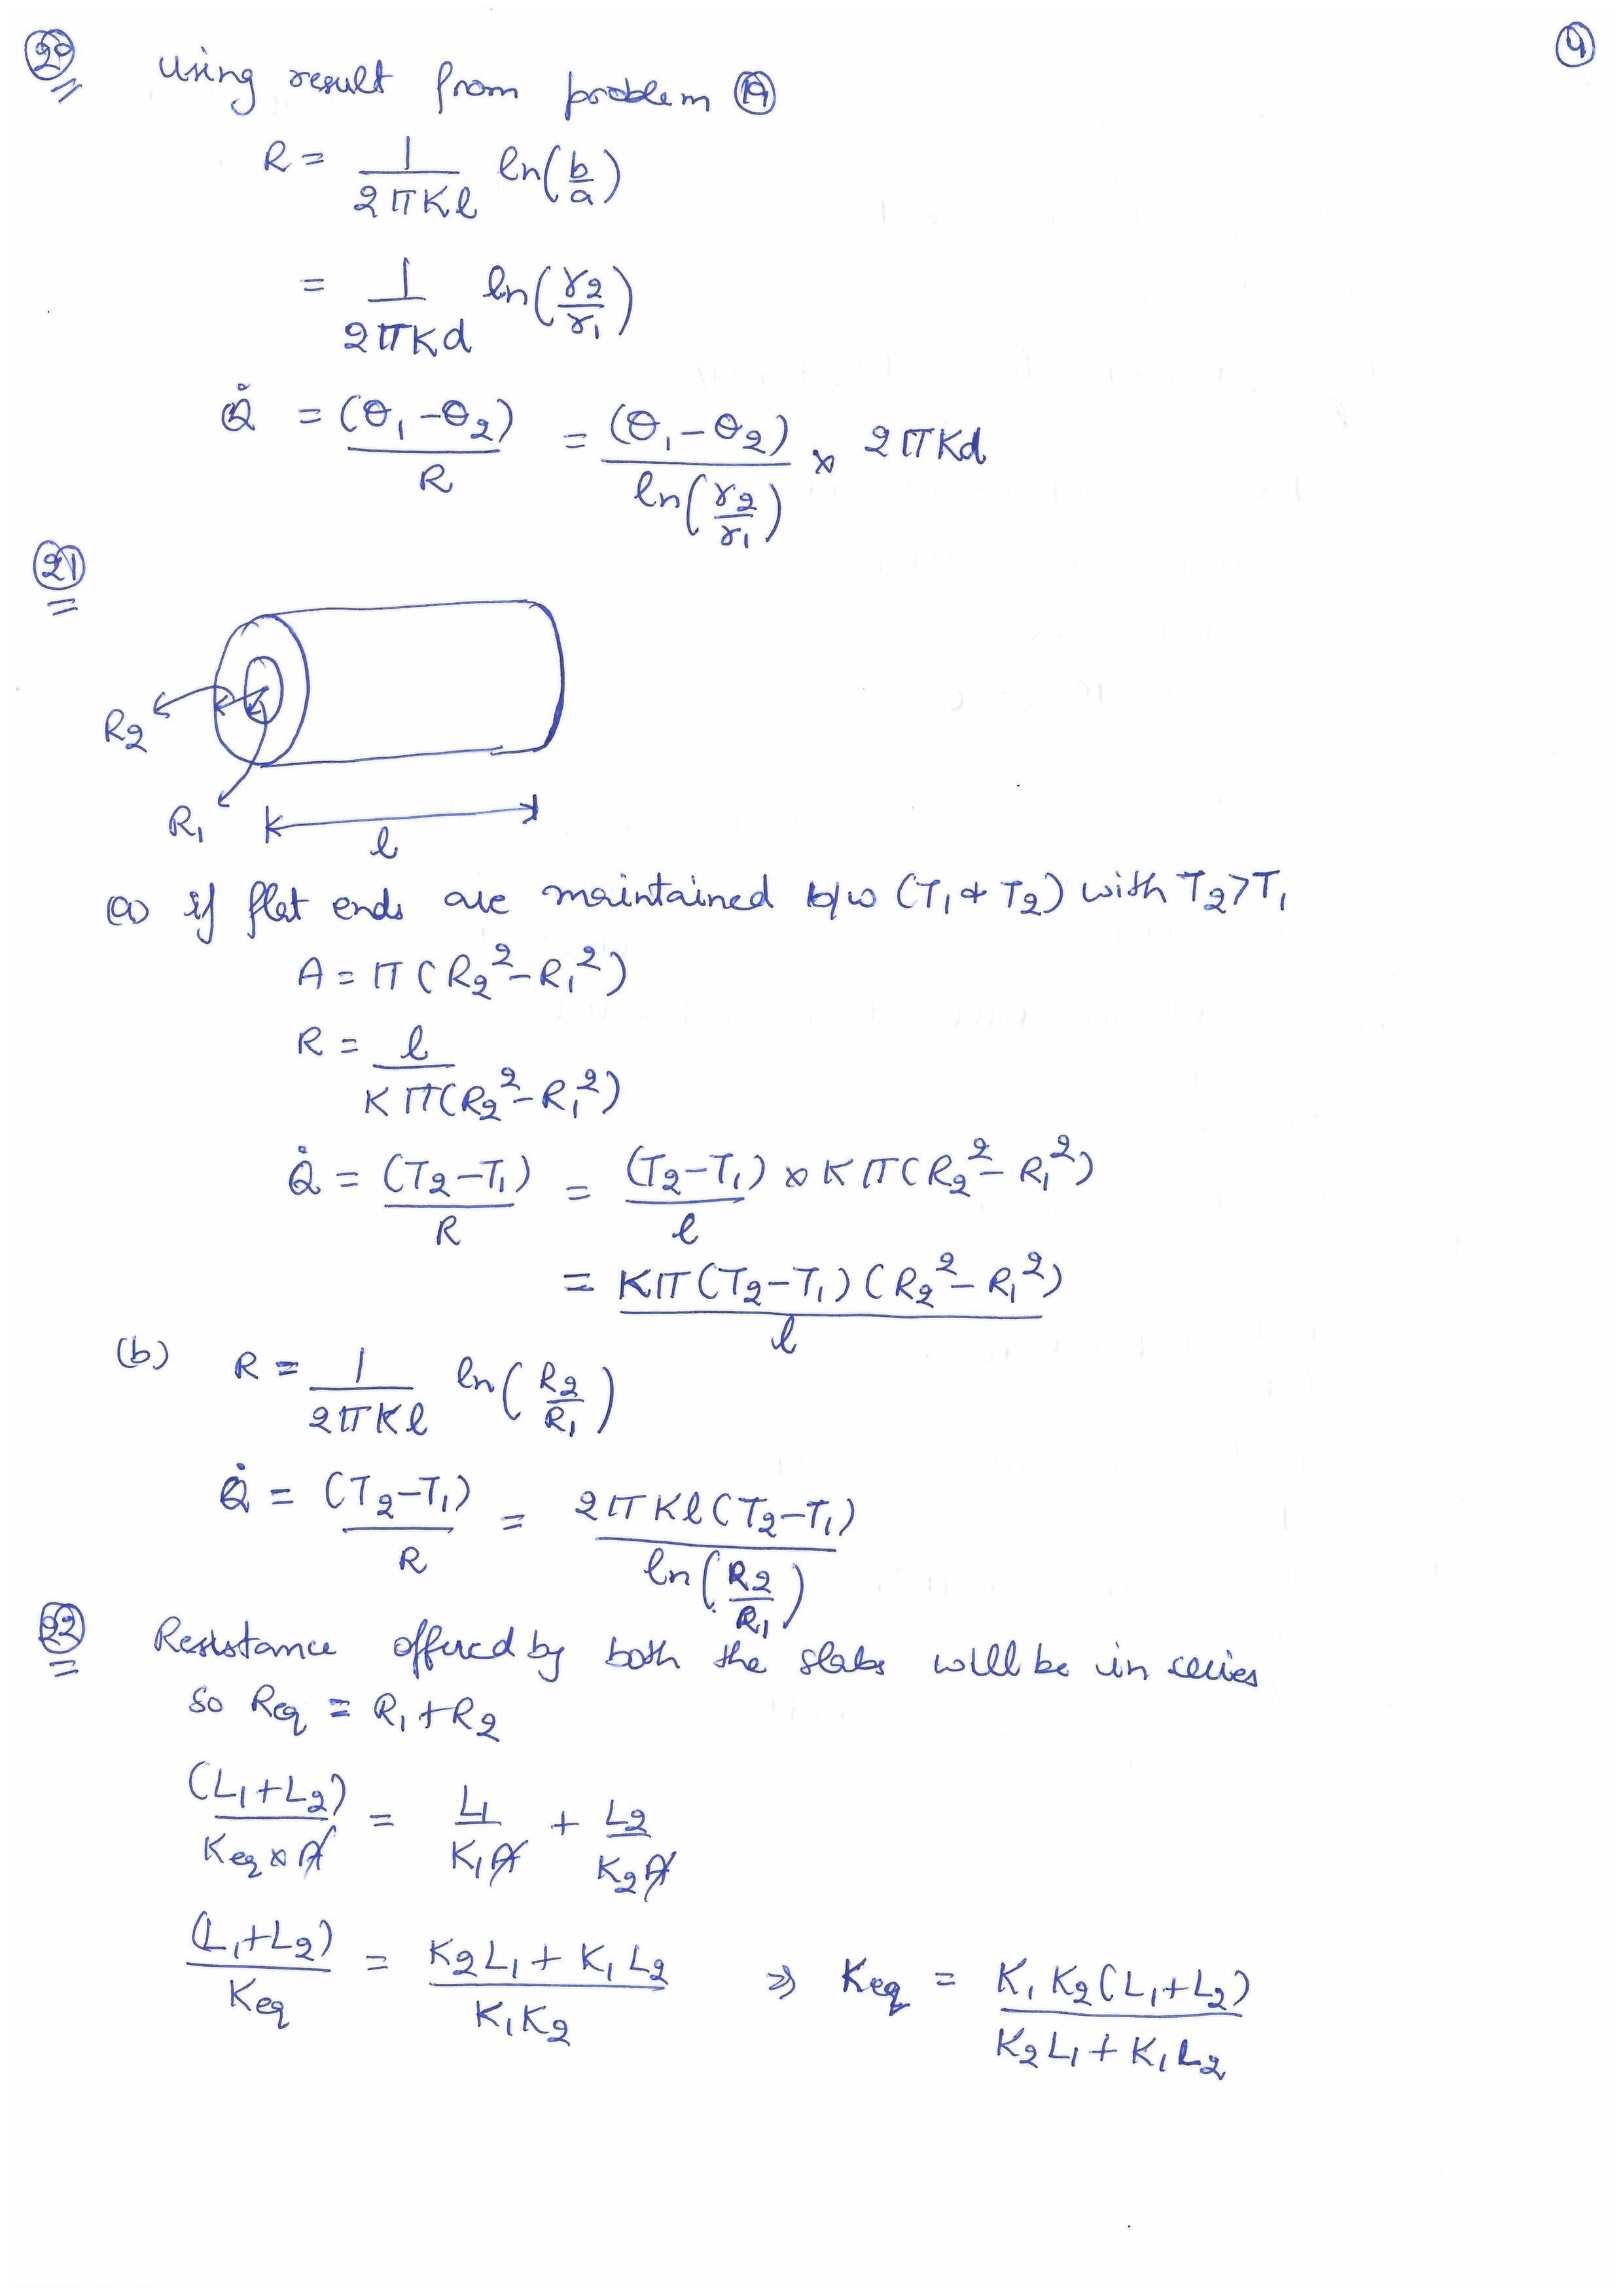 20 4
using result from problem 19
R = 1/(2πKl) ln(b/a)
= 1/(2πKd) ln(r2/r1)
Q̇ = (θ1-θ2)/R = (θ1-θ2)/ln(r2/r1) × 2πKd
21
R2
R1
l
(a) if flat ends are maintained b/w (T1 & T2) with T2>T1
A = π(R2²-R1²)
R = l/(Kπ(R2²-R1²))
Q̇ = (T2-T1)/R = (T2-T1)/l × Kπ(R2²-R1²)
= Kπ(T2-T1)(R2²-R1²)/l
(b) R = 1/(2πKl) ln(R2/R1)
Q̇ = (T2-T1)/R = 2πKl(T2-T1)/ln(R2/R1)
22 Resistance offered by both the slabs will be in series
so Req = R1+R2
(L1+L2)/(Keq×A) = L1/(K1A) + L2/(K2A)
(L1+L2)/Keq = (K2L1+K1L2)/(K1K2) ⇒ Keq = K1K2(L1+L2)/(K2L1+K1L2)